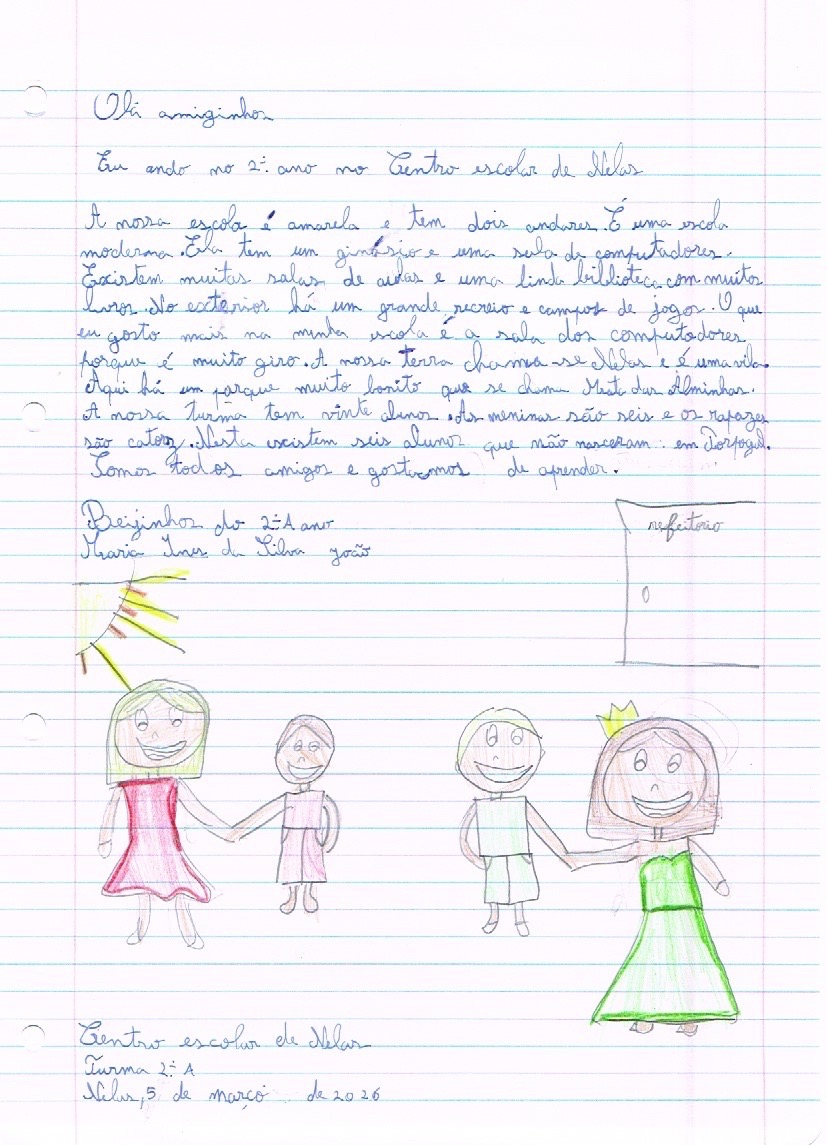 Olá amiginhos
Eu ando no 2º ano no Centro escolar de Nelas
A nossa escola é amarela e tem dois andares. É uma escola
moderna. Ela tem um ginásio e uma sala de computadores.
Existem muitas salas de aulas e uma linda biblioteca com muitos
livros. No exterior há um grande recreio e campos de jogos. O que
eu gosto mais na minha escola é a sala dos computadores
porque é muito giro. A nossa terra chama-se Nelas e é uma vila.
Aqui há um parque muito bonito que se chama Mata das Alminhas.
A nossa turma tem vinte alunos. As meninas são seis e os rapazes
são catorz. Nesta existem seis alunos que não nasceram em
Somos todos amigos e gostamos de aprender.
Beijinhos do 2º A ano
Maria Ines da Silva João
refeitorio
Centro escolar de Nelas
Turma 2º A
Nelas, 5 de março de 2026